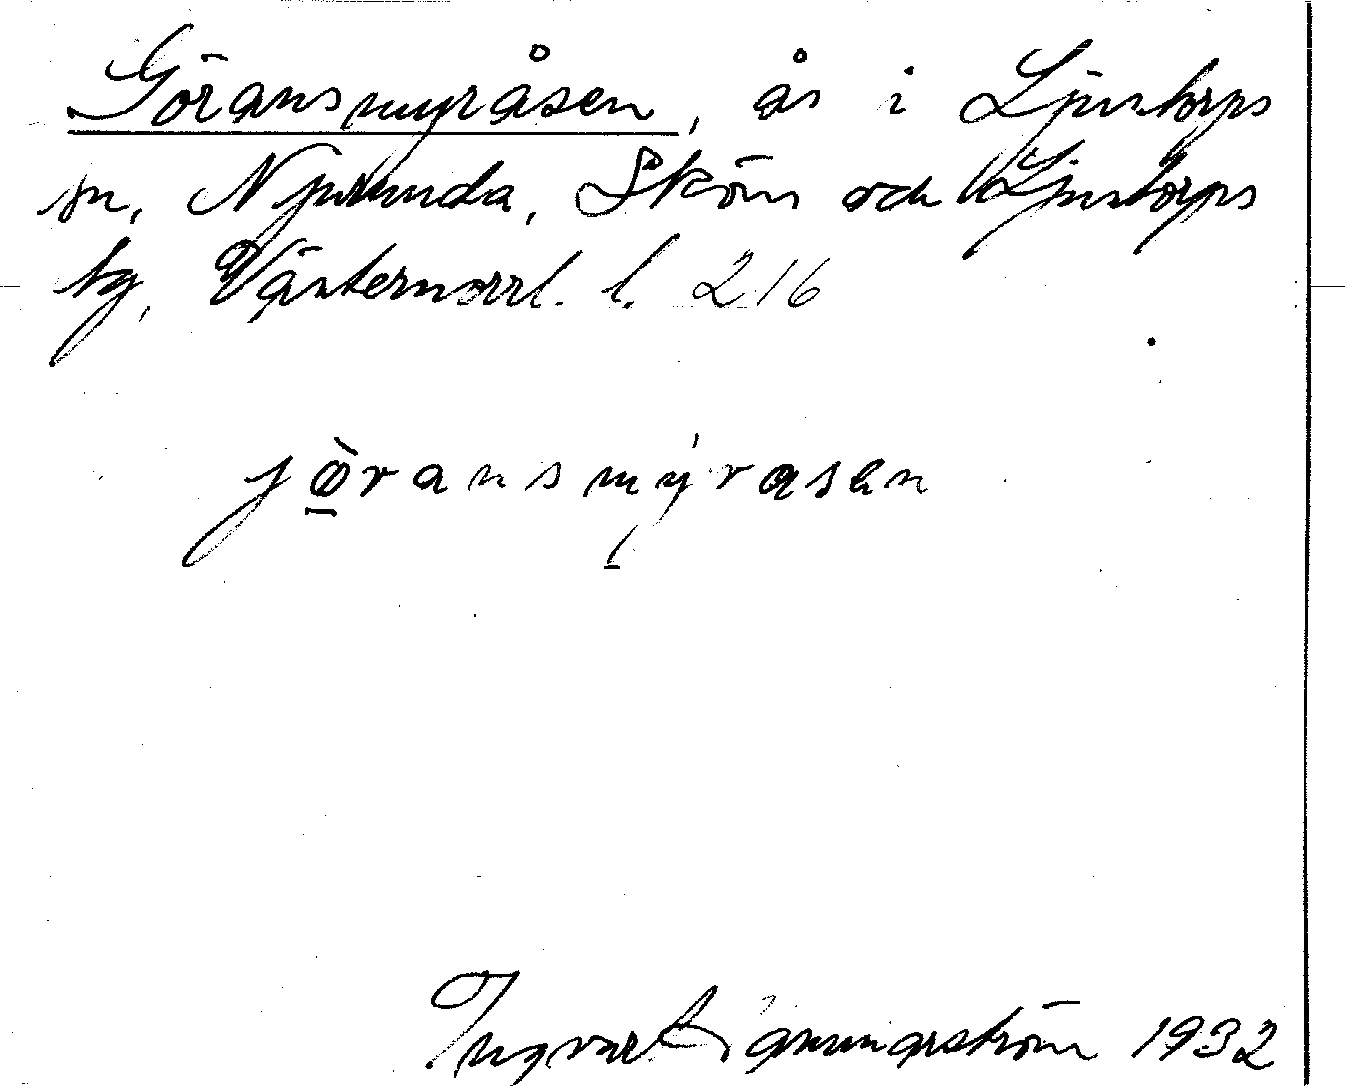 Göransmyråsen, ås i Ljustorps
sn, Njurunda, Sköns och Ljustorps
tg, Västernorrl. l. 216
jø̀ransmýrasen
Ingvar 1932